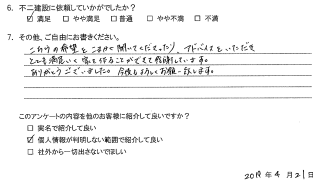 6. 不二建設に依頼していかがでしたか？
☑ 満足 □ やや満足 □ 普通 □ やや不満 □ 不満
7. その他、ご自由にお書きください。
こちらの希望をこまかく聞いてくださったり、アドバイスをいただき
とても満足いく家を作ることができて感謝しています。
ありがとうございました。今後もよろしくお願い致します。
このアンケートの内容を他のお客様に紹介して良いですか？
□ 実名で紹介して良い
☑ 個人情報が判明しない範囲で紹介して良い
□ 社外から一切出さないでほしい
年 4 月 21 日